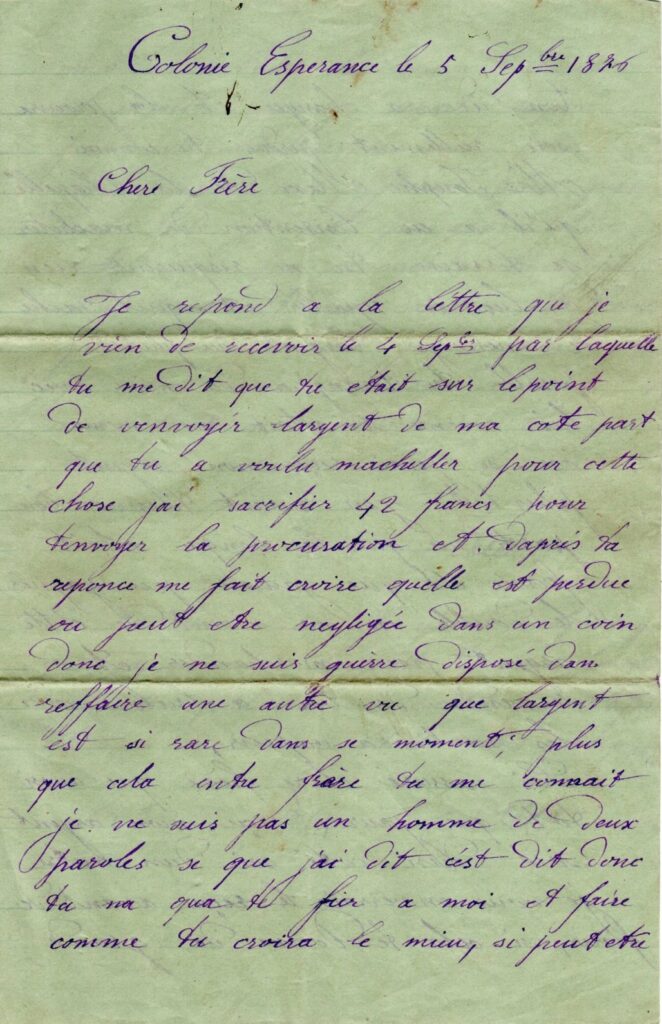 Colonie Esperance le 5 Sepbre 1896
Chere Frère
Je repond a la lettre que je
vien de recevoir le 4 Sepbre par laquelle
tu me dit que tu était sur le point
de venvoyér largent de ma cote part
que tu a voulu machetter pour cette
chose jai sacrifier 42 francs pour
tenvoyer la procuration et. daprés ta
reponce me fait croire quelle est perdue
ou peut etre negligée dans un coin
donc je ne suis guerre disposé dan
reffaire une autre vu que largent
est si rare dans se moment, plus
que cela entre frère tu me connait
je ne suis pas un homme de deux
paroles se que jai dit cést dit donc
tu na qua te fier a moi et faire
comme tu croira le mieu, si peut etre